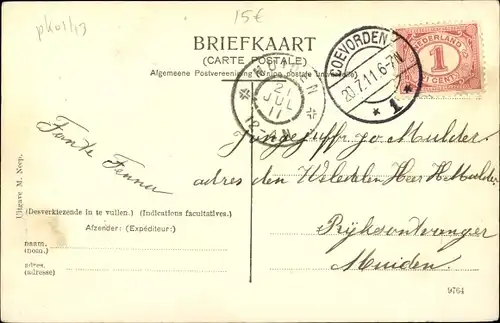 pk01/13
15€
BRIEFKAART
(CARTE POSTALE)
Algemeene Postvereeniging (Union postale universelle)
COEVORDEN
20.7.11.6-7N
* 1 *
NEDERLAND
1
CENT
MUIDEN
21
JUL
11
12-
Jongejuffr. Jo Mulder
adres den WelEdelen Heer H Mulder
Rijksontvanger
Muiden
Tante
Uitgave M. Neep.
(Desverkiezende in te vullen.) (Indications facultatives.)
Afzender: (Expéditeur:)
naam.
(nom.)
adres.
(adresse)
9764